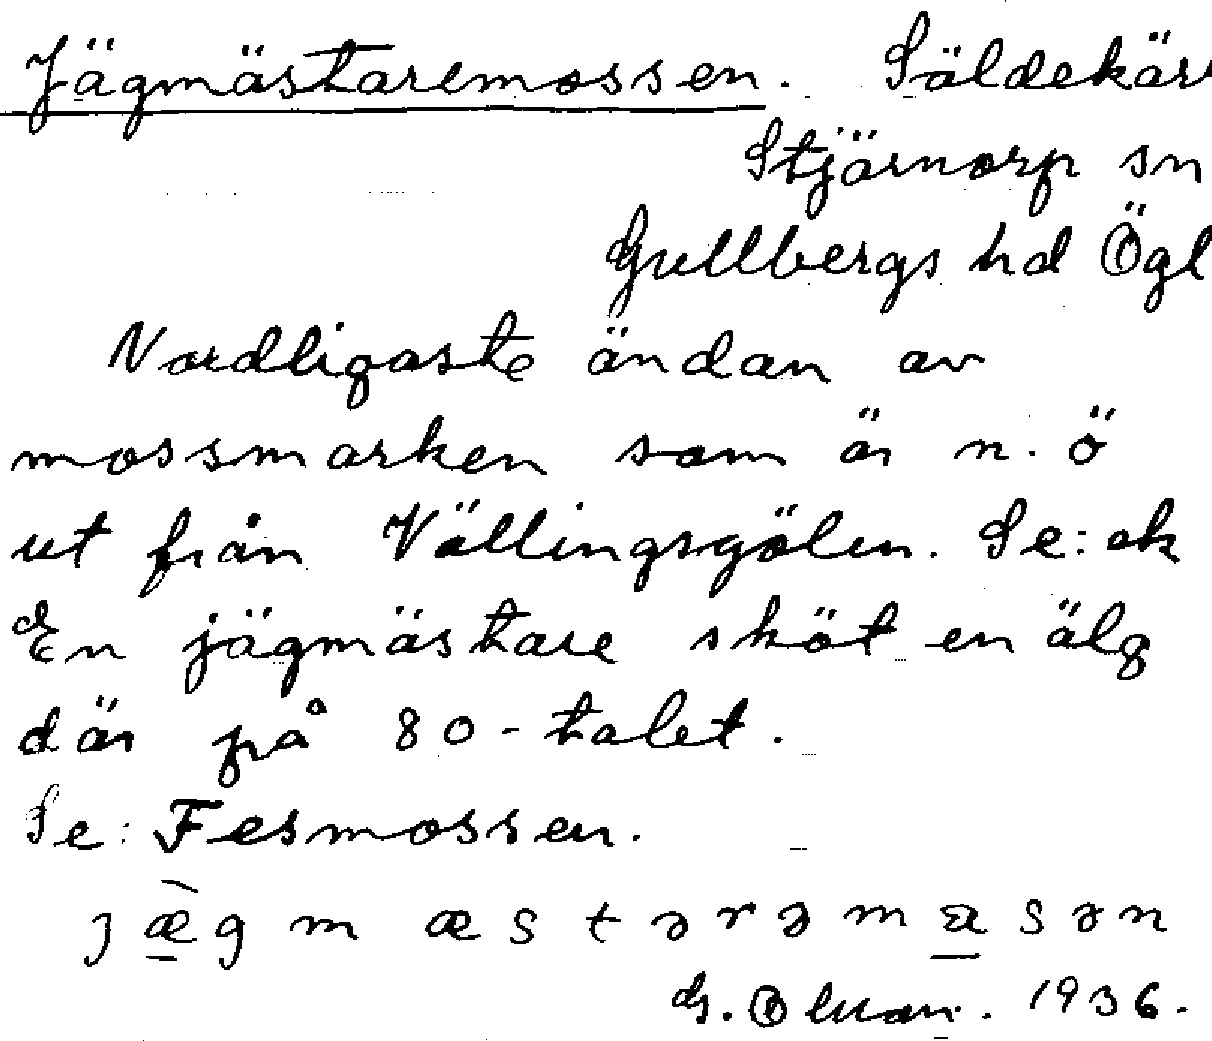 Jägmästaremossen. Säldekärr
Stjärnorp sn
Gullbergs hd Ögl
Nordligaste ändan av
mossmarken som är n. ö
ut från Vällingsgölen. Se: ek
En jägmästare sköt en älg
där på 80-talet.
Se: Fesmossen.
ȷæ̀gmæstərəməsən
G. Olsson. 1936.